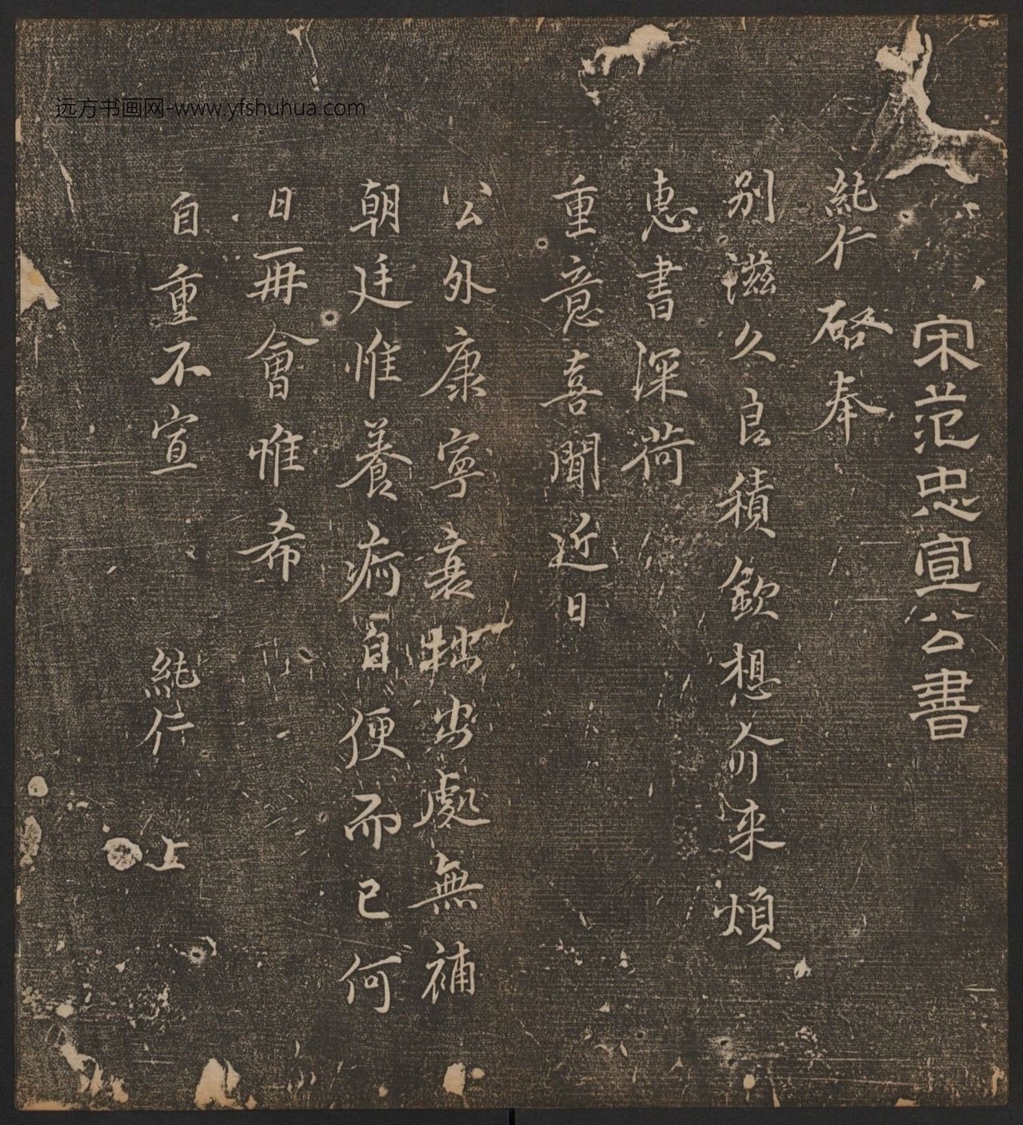 远方书画网-www.yfshuhua.com
宋范忠宣公書
純仁 啓奉
别滋久良積欽想俞来煩
惠書深荷
重意喜聞近日
公外康寧衰拙安處無補
朝廷惟養痾自便而已何
日再會惟希
自重不宣
純仁 上